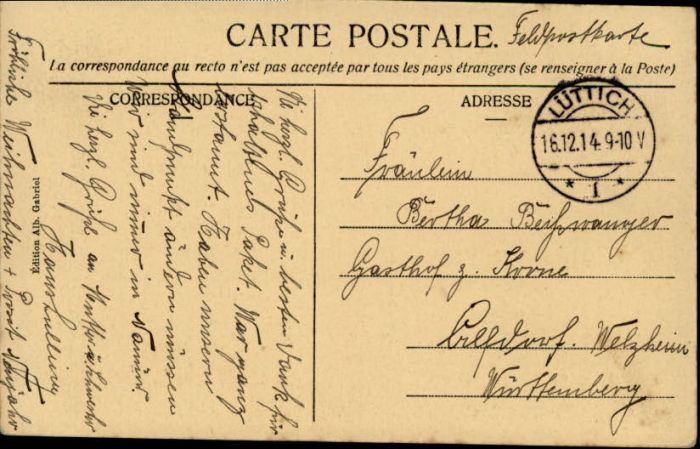 CARTE POSTALE.
Feldpostkarte
La correspondance au recto n'est pas acceptée par tous les pays étrangers (se renseigner à la Poste)
CORRESPONDANCE
ADRESSE
LÜTTICH
16.12.14. 9-10 V
* 1 *
Fräulein
Bertha Beißwanger
Gasthof z. Krone
Alfdorf. Welzheim
Württemberg
Die herzl. Grüße u. besten Dank für
erhaltenes Paket. War ganz
erstaunt. Haben unsern
Standpunkt ändern müssen
Wir sind immer in Namur.
Die herzl. Grüße an Mutter u. Schwester
Édition Alb. Gabriel
Fröhliche Weihnachten + Prosit Neujahr